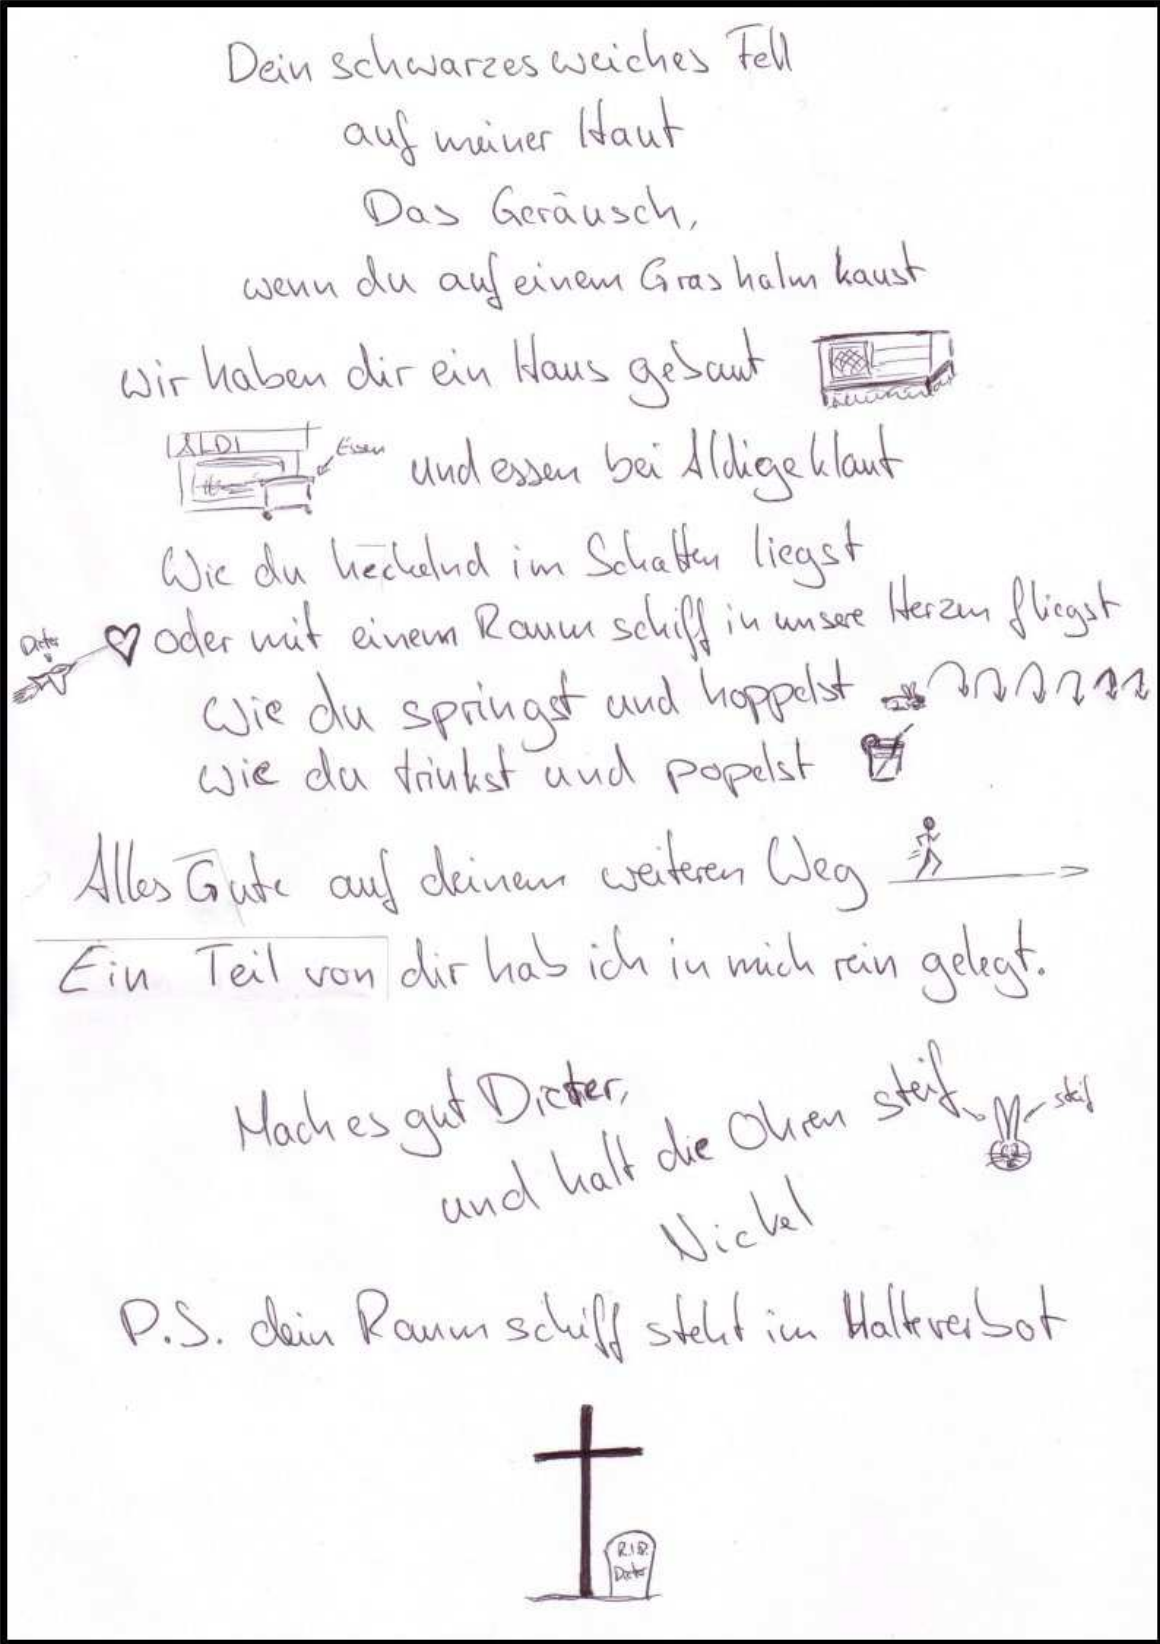 Dein schwarzes weiches Fell
auf meiner Haut
Das Geräusch,
wenn du auf einem Grashalm kaust
wir haben dir ein Haus gebaut
ALDI
Essen
und essen bei Aldi geklaut
Wie du hechelnd im Schatten liegst
Dieter
oder mit einem Raumschiff in unsere Herzen fliegst
wie du springst und hoppelst
wie du trinkst und popelst
Alles Gute auf deinem weiteren Weg
Ein Teil von dir hab ich in mich rein gelegt.
Mach es gut Dieter,
und halt die Ohren steif
steif
Nickel
P.S. dein Raumschiff steht im Halteverbot
R.I.P.
Dieter